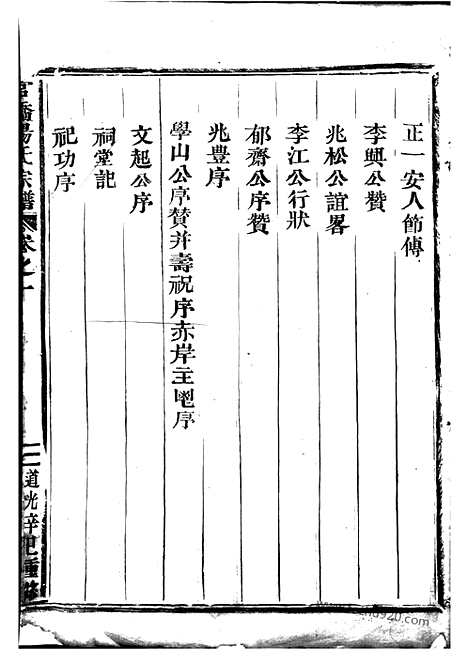 正一安人節傳
李興公贊
兆松公誼畧
李江公行狀
郁齋公序贊
兆豊序
學山公序贊并壽祝序赤岸主鬯序
文起公序
祠堂記
祀功序
宗譜
卷之十
二
道光辛巳重修